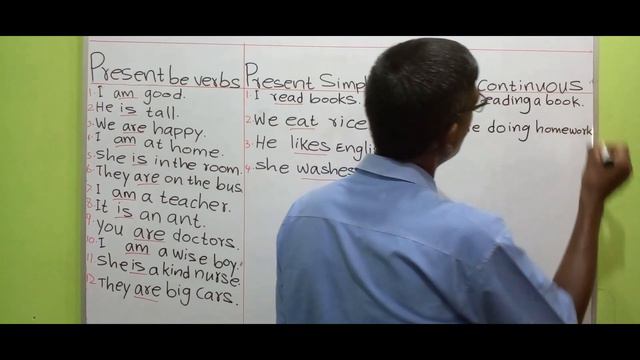 Present be verbs
1. I am good.
2. He is tall.
3. We are happy.
4. I am at home.
5. She is in the room.
6. They are on the bus
7. I am a teacher.
8. It is an ant.
9. you are doctors.
10. I am a wise boy.
11. She is a kind nurse.
12. They are big cars.
Present
1. I read books.
2. We eat rice
3. He likes
4. She washes
continuous
a book.
doing homework